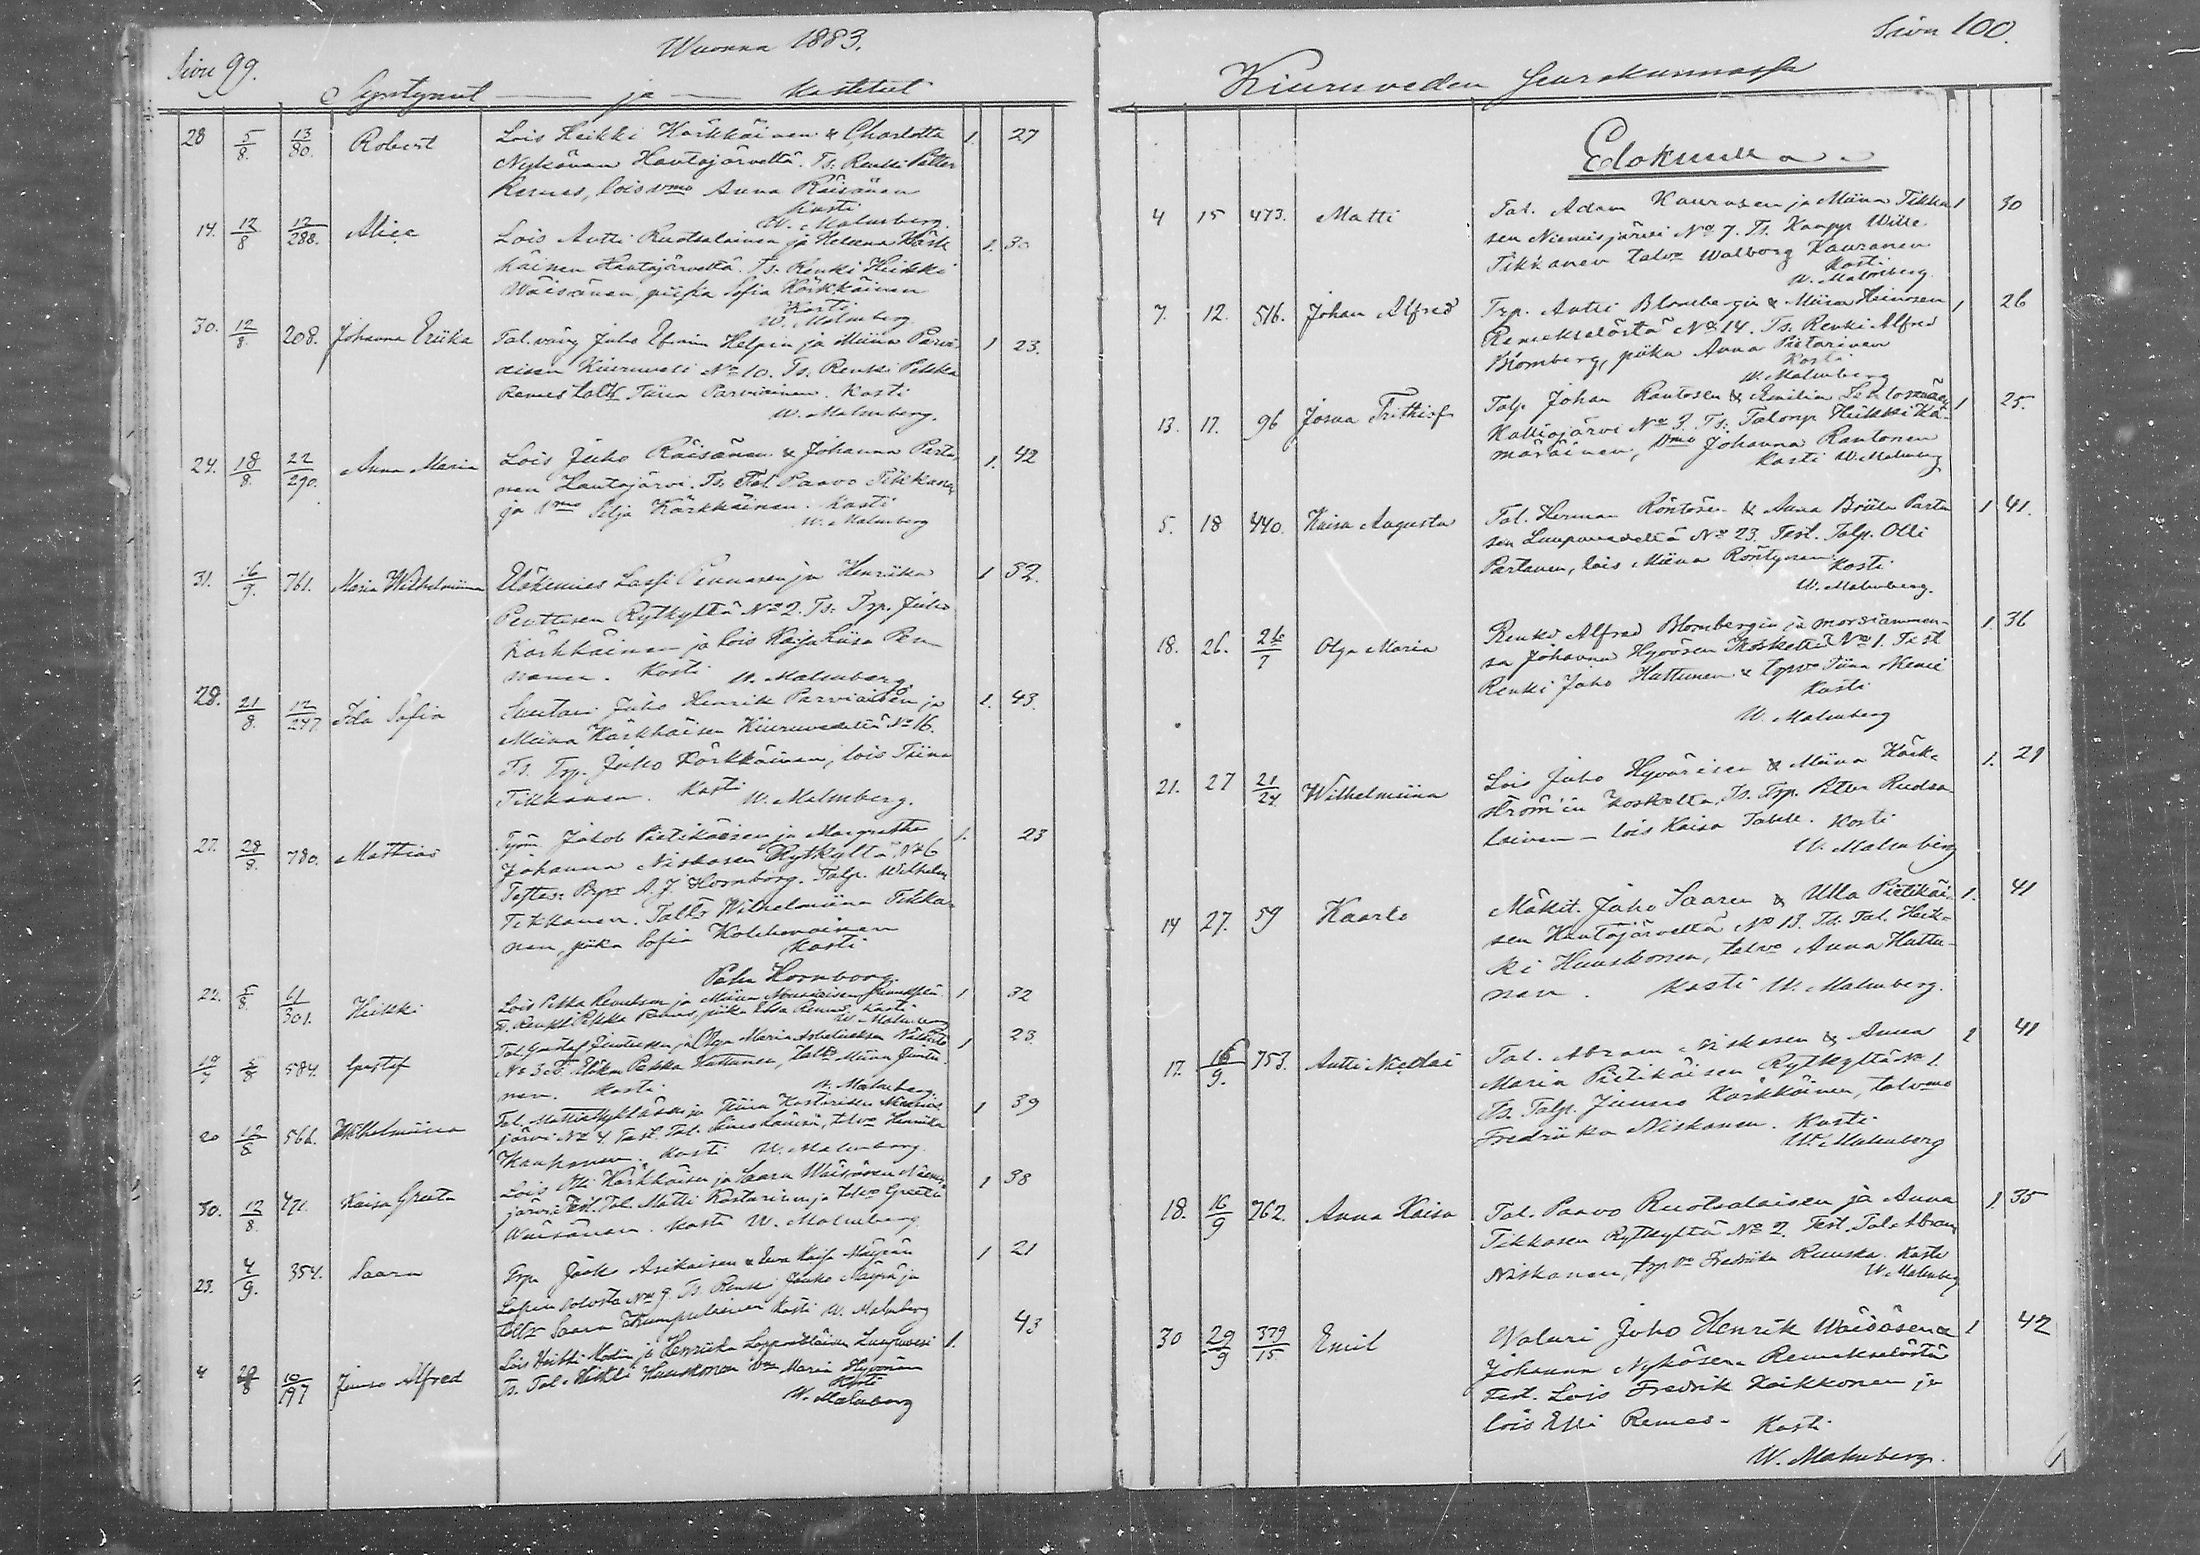 Wuonna 1883.
Sivu 99.
Syntynnet ja kastetut
28 5/8. 13/80. Robert Lois Heikki Kärkkäinen & Charlotta 1. 27
Nykänen Hautajärveltä. Ts. Renki Petter
Remes, lois vmo Anna Räisänen
Kasti
W. Malmberg.
14. 12/8 12/288. Alice Lois Antti Ruotsalainen ja Helena Kärk 1. 30
käinen Hautajärveltä. Ts. Renki Heikki
Wäisänen, piika Sofia Kärkkäinen
Kasti
W. Malmberg
30. 12/8. 208. Johanna Eriika Tal. väng Juho Efraim Helpin ja Miina Parvi 1 23.
aisen Kiuruvesi No 10. Ts. Renki Pekka
Remes Tiina Parviainen. Kasti
W. Malmberg.
24. 18/8. 22/290. Anna Maria Lois Juho Räisänen & Johanna Parta 1. 42
nen Hautajärvi. Ts. Tal. Paavo Tikkanen
ja vmo Selja Kärkkäinen. Kasti
W. Malmberg
31. 16/9. 761. Maria Wilhelmiina Eläkemies Lassi Pennasen ja Henriika 1 52.
Penttisen Rytkyltä No 2. Ts. Trp. Juho
Kärkkäinen ja lois Kaisa Liisa Pen
nanen. Kasti W. Malmberg.
28. 21/8. 12/247. Ida Sofia Suutari Juho Henrik Parviaisen ja 1. 43.
Miina Kärkkäisen Kiuruvedeltä No 16.
Ts. Trp. Juho Kärkkäinen, lois Tiina
Tikkanen. Kasti W. Malmberg.
27. 28/8. 780. Mattias Työm Jakob Pietikäisen ja Margretha 1. 23
Johanna Niskasen Rytkyltä No 6
Testes: A. J. Hornborg. Talp. Wilhelm
Tikkanen. Wilhelmiina Tikka
nen, piika Sofia Kolehmainen
Kasti
Hornborg.
22. 5/8. 61/301. Heikki Lois Pekka Remeksen ja Miina 1 32
Ts. Renki Pekka Remes, piika Remes. Kasti
W. Malmberg
19/7 5/8 584. Gustaf Tal. Gustaf Jäntisen ja Olga Maria 1 23.
No 3. Ts. Pekka Huttunen, Miina Jänti
nen. Kasti W. Malmberg
20 12/8 566. Wilhelmiina Tal. Matti ja Tiina Kastarisen 1 39
järvi No 4. Test. Tal. talvo Henriika
Kauppinen. Kasti W. Malmberg.
30. 12/8. 471. Kaisa Greeta Lois Olli Kärkkäisen ja Saara Wäisäsen 1 38
järvi Test. Tal. Matti Kastarinen ja talvo Greeta
Wäisänen. Kasti W. Malmberg
23. 4/9. 354. Saara Trp. Jaak Asikaisen & Eva Kaisa Mäyrän 1 21
Lapinsalosta No 9. Ts. Renki Jaako Mäyrä ja
Saara Rumpulainen Kasti W. Malmberg
4 28/8 10/197 Junno Alfred Lois Heikki ja Henriika Lappalaisen Luupuvesi 1. 43
Ts. Tal. Heikki Huuskonen vmo Maria Hyvönen
Kasti
W. Malmberg
Sivu 100.
Kiuruveden Seurakunnassa
Elokuulla
4 15 473. Matti Tal. Adam Kaurasen ja Miina Tikka 1 30
sen Niemisjärvi No 7. Ts. Kaupp Wille
Tikkanen talvo Walborg Kauranen
Kasti
W. Malmberg.
7. 12. 516. Johan Alfred Trp. Antti Blombergin & Miina Heinosen 1 26
Remekselästä No 14. Ts. Renki Alfred
Blomberg, piika Anna Pietarinen
Kasti
W. Malmberg
13. 17. 96 Josua Frithiof Talp. Johan Rautosen & Emilia 1 25.
Kalliojärvi No 3. Ts. Talonp Heikki Kä
märäinen, vmo Johanna Rautonen
Kasti W. Malmberg
5. 18 440. Kaisa Augusta Tal. Herman Röntösen & Anna Briita Parta 1 41.
sen Luupuvedeltä No 23. Test. Talp. Olli
Partanen, lois Miina Röntynen
Kasti
W. Malmberg.
18. 26. 26/7 Olga Maria Renki Alfred Blombergin ja morsiammen- 1. 36
sa Johanna Hyvösen Koskelta No 1. Test
Renki Juho Huttunen & Tiina Niemi
Kasti
W. Malmberg
21. 27 21/24 Wilhelmiina Lois Juho Hyvärisen & Miina Käck- 1. 29
ström'in Koskelta, Ts. Trp. Petter Ruotsa
lainen - lois Kaisa. Kasti
W. Malmberg
14 27. 59 Kaarlo Mäkit. Juho Saaren & Ulla Pietikäi- 1. 41
sen Hautajärveltä No 13. Ts. Tal. Heik-
ki Huuskonen, talvo Anna Huttu-
nen. Kasti W. Malmberg.
17. 16/9. 753. Antti Nicolai Tal. Abram Niskasen & Anna 1 41
Maria Pietikäisen Rytkyltä No 1.
Ts. Talp. Junno Kärkkäinen, talvmo
Fredriika Niskanen. Kasti
W. Malmberg
18. 16/9 762. Anna Kaisa Tal. Paavo Ruotsalaisen ja Anna 1. 35
Tikkasen Rytkyltä No 2. Test. Tal. Abram
Niskanen, trp vo Fredrika Ruuska. Kasti
W. Malmberg
30 29/9 379/15. Emil Waluri Juho Henrik Wäisäsen & 1 42
Johanna Nykäsen Remekselästä
Test. Lois Fredrik Koikkonen ja
lois Elli Remes. Kasti
W. Malmberg.